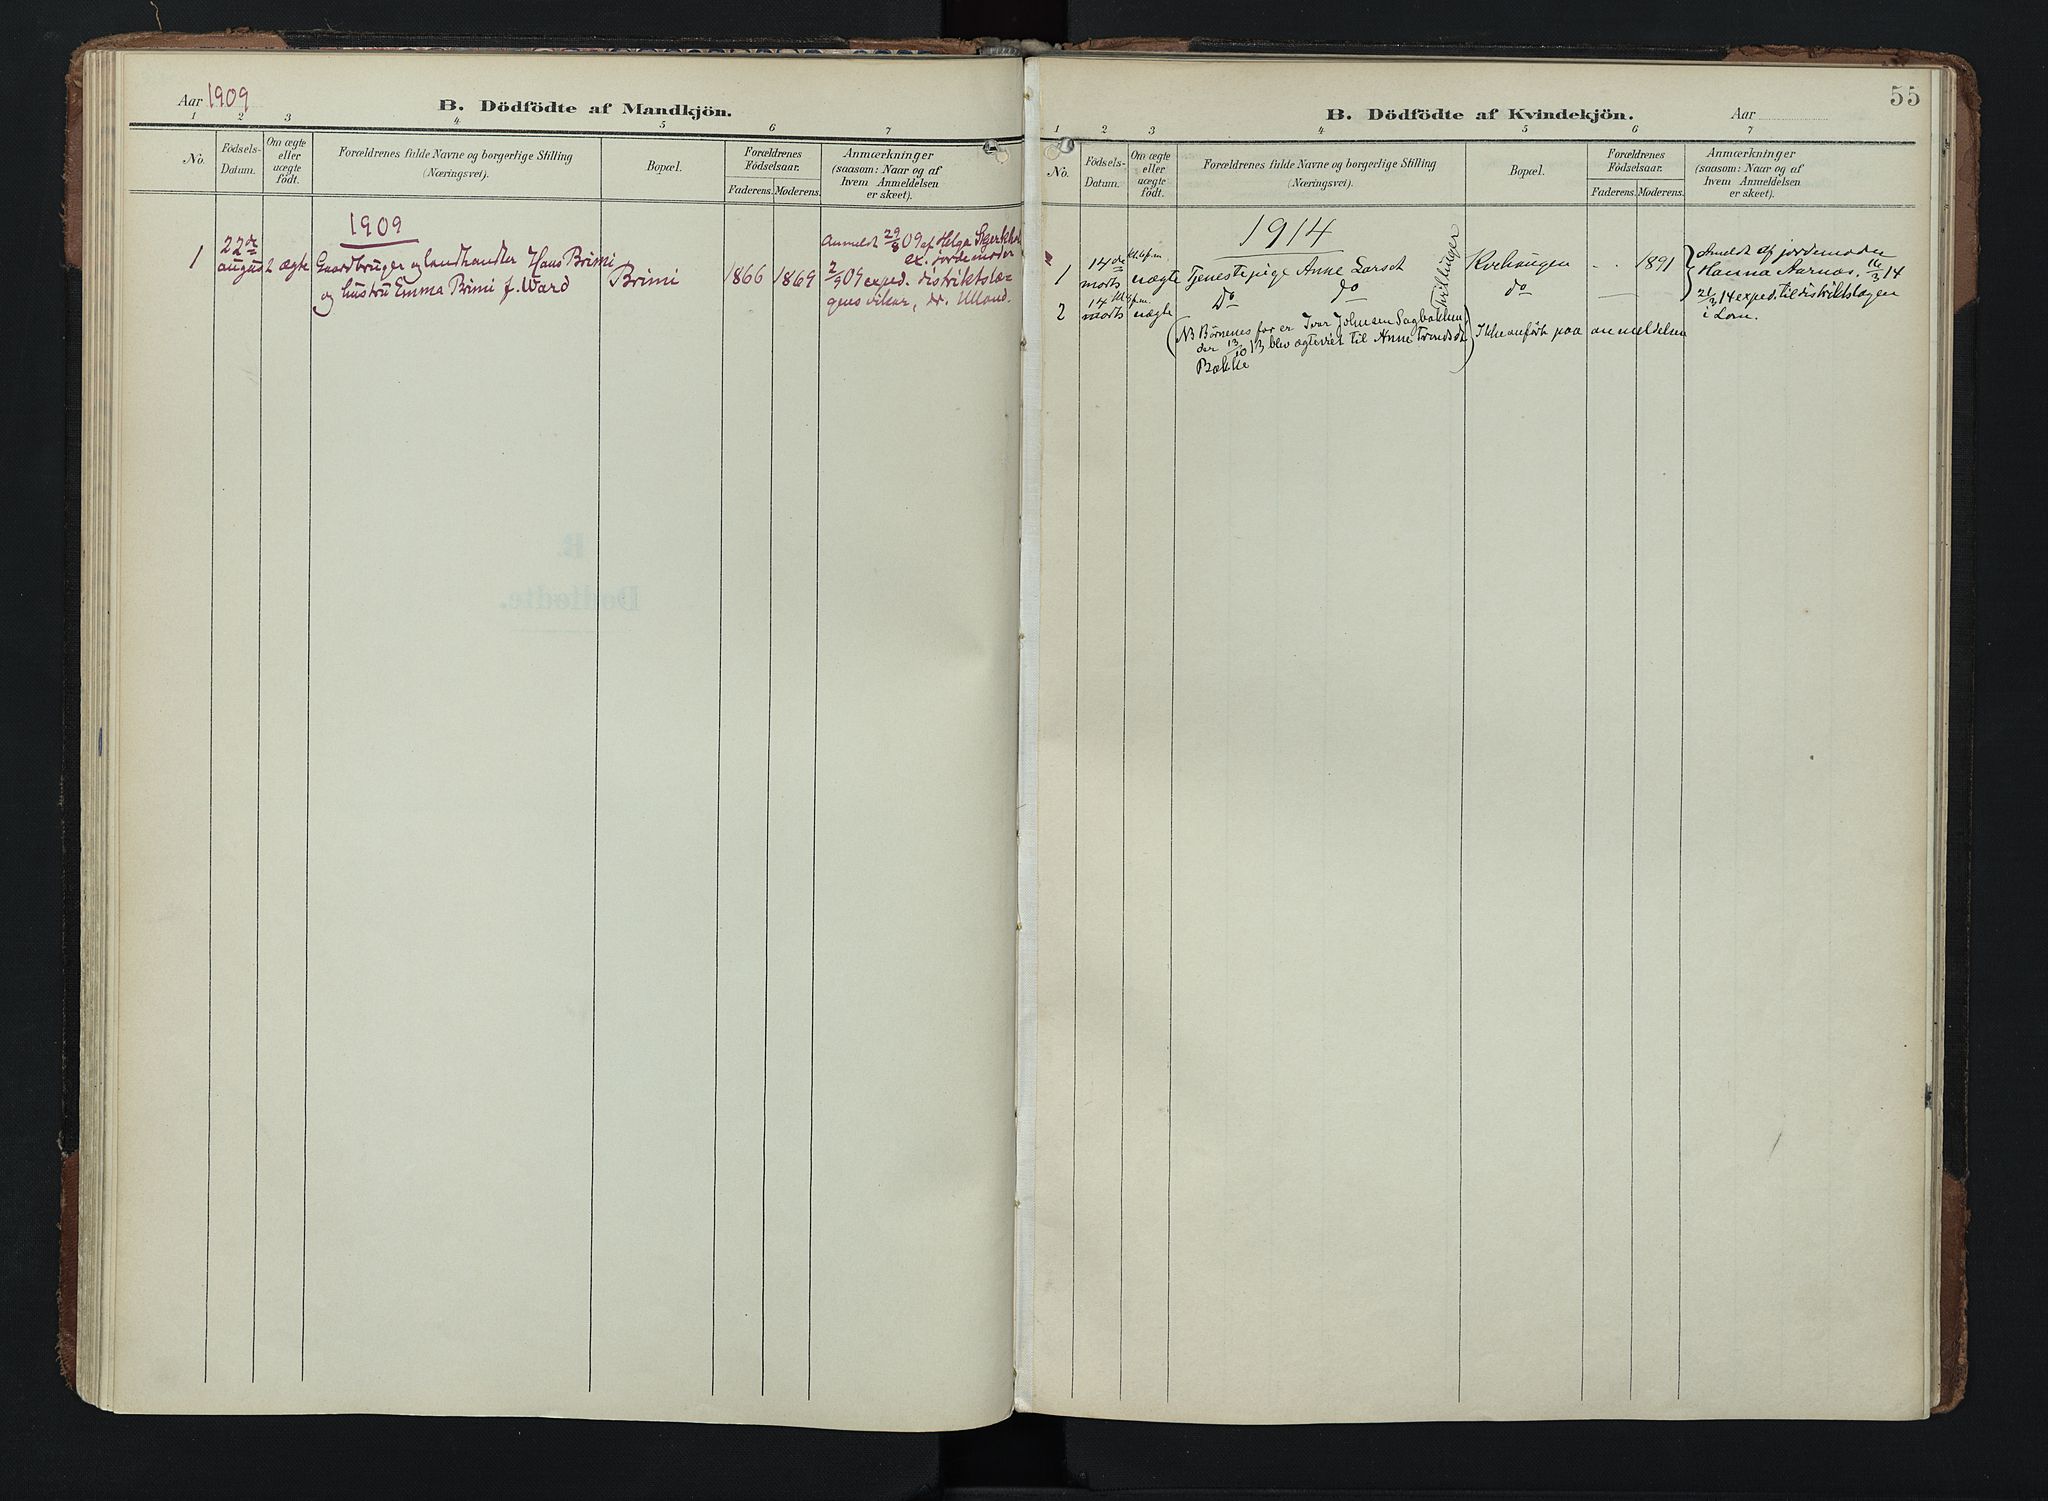 Aar 1909
B. Dödfödte af Mandkjön.
1 2 3 4 5 6 7
No.
Födsels-
Datum.
Om ægte
eller
uægte
födt.
Forældrenes fulde Navne og borgerlige Stilling
(Næringsvei).
Bopæl.
Forældrenes
Födselsaar.
Faderens. Moderens.
Anmærkninger
(saasom: Naar og af
hvem Anmeldelsen
er skeet).
1909
1
22de
august
ægte
Gaardbruger og landhandler Hans Brimi
og hustru Emma Brimi f. Ward
Brimi
1866 1869
Anmeldt 29/8 09 af Helga
ex. jordemoder
2/9 09 exped. distriktslæ-
gens vikar, dr. Uland.
55
B. Dödfödte af Kvindekjön.
Aar
1 2 3 4 5 6 7
No.
Födsels-
Datum.
Om ægte
eller
uægte
födt.
Forældrenes fulde Navne og borgerlige Stilling
(Næringsvei).
Bopæl.
Forældrenes
Födselsaar.
Faderens. Moderens.
Anmærkninger
(saasom: Naar og af
hvem Anmeldelsen
er skeet).
1914
1
14de
marts
uægte
Tjenestepige Anne Larsdt
Kvehaugen
1891
Anmeldt af jordemoder
Hanna Aarnæs. 16/3 14
2
14
marts
uægte
Do do
do
21/3 14 exped. til distriktslægen
i Lom.
Tvillinger
(NB Børnenes far er Ivar Johnsen Sagbakken,
der 13/10 13 blev ægteviet til Anne Trondsdt
Bakke)
Ikke anført paa anmeldelsen